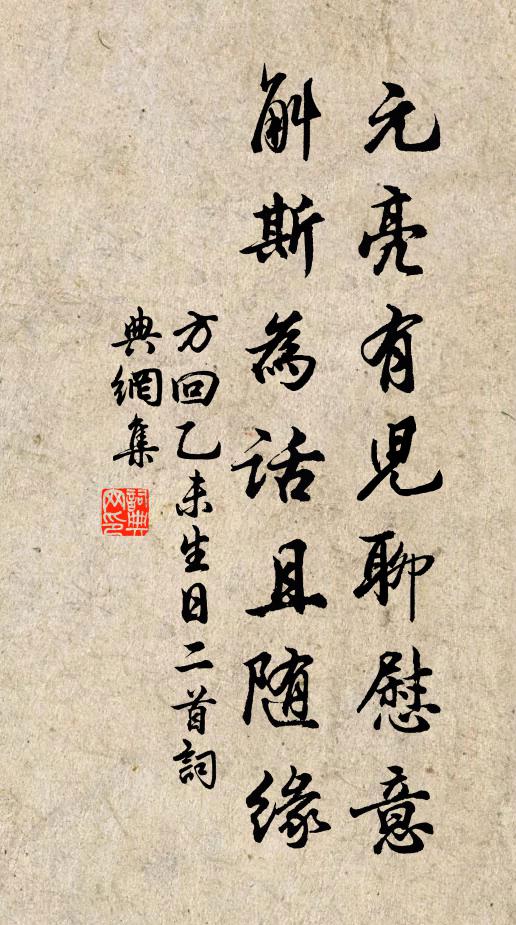 元亮有児聊慰意
斛斯為話且随緣
方回乙未生日二首詞
典網集
詞典
网印